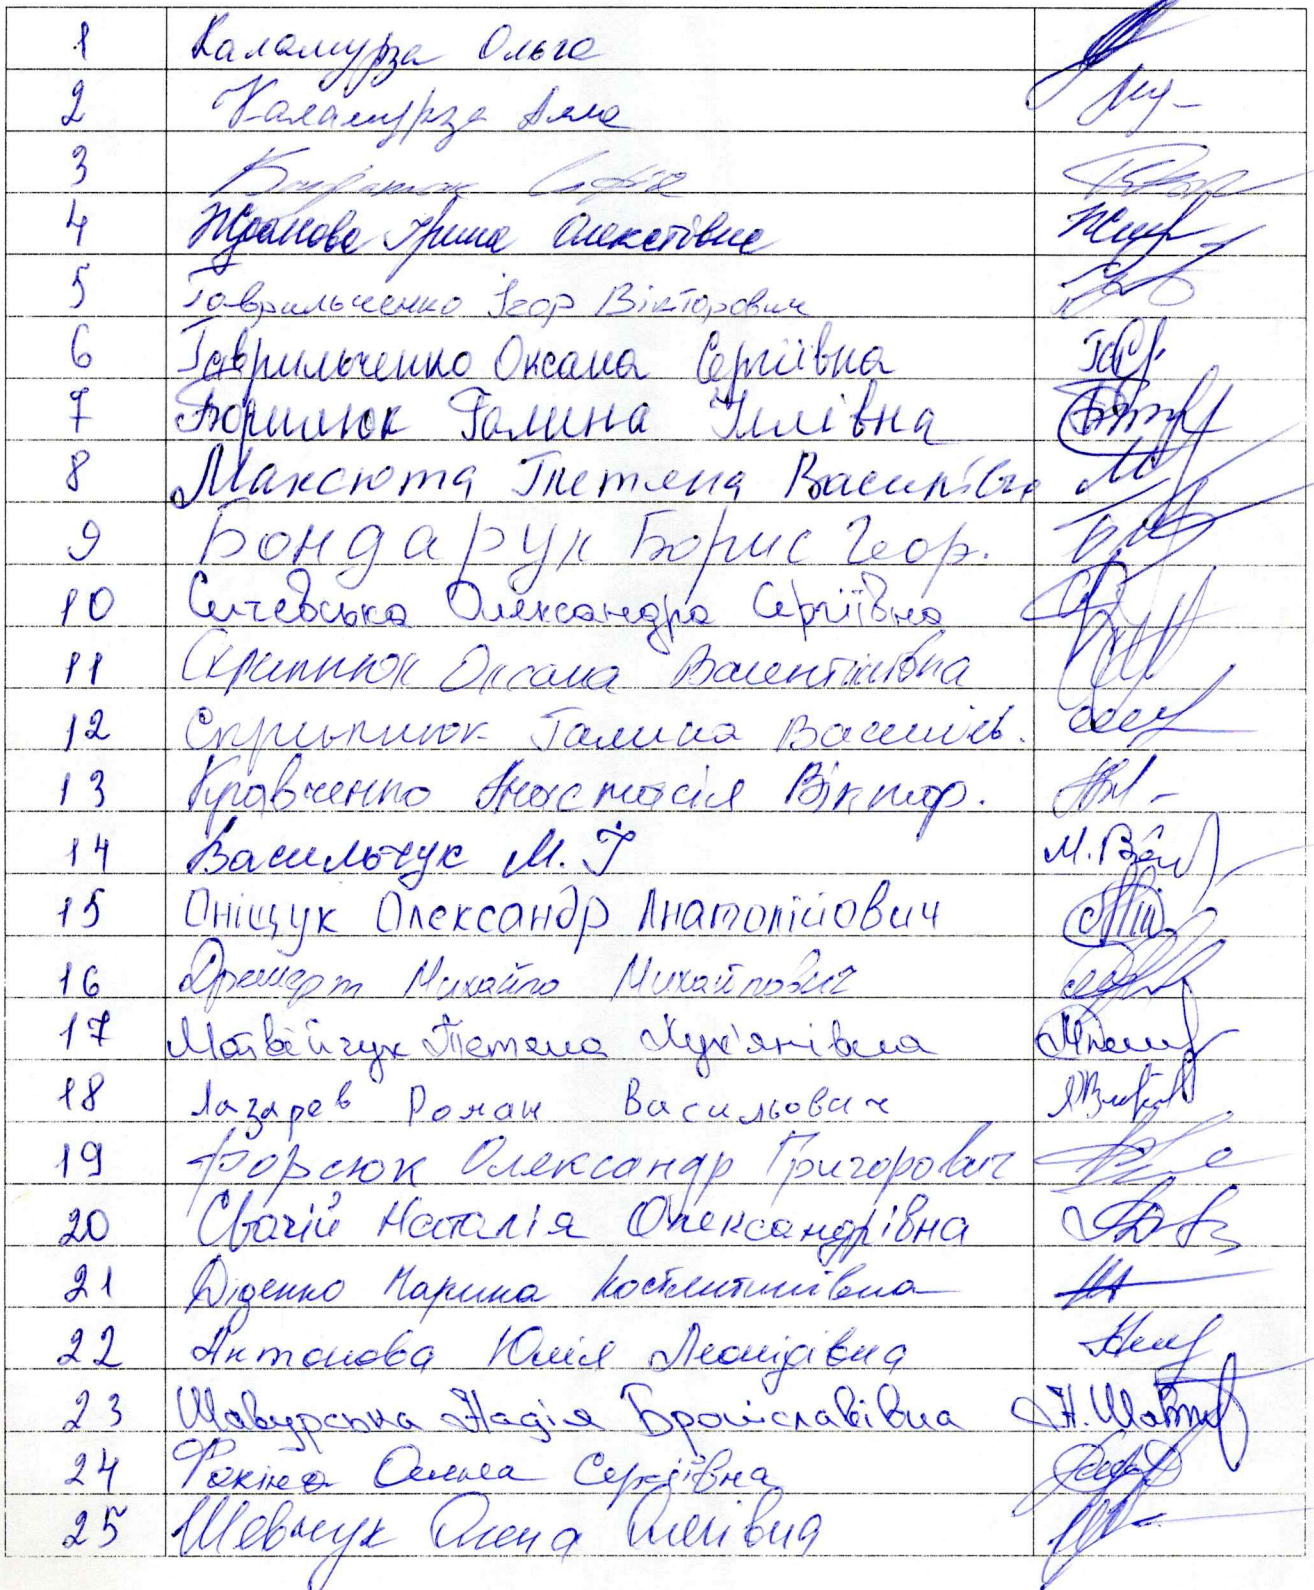 1 Каламурза Ольга
2 Каламурза Алла
3 Софія
4 Жданова Ірина Олексіївна
5 Гаврильченко Ігор Вікторович
6 Гаврильченко Оксана Сергіївна ГОС
7 Галина Іллівна
8 Максюта Тетяна Василівна
9 Бондарук Борис Геор.
10 Ситевська Олександра Сергіївна
11 Скрипнюк Оксана Валентинівна
12 Скрипнюк Галина Василів.
13 Кравченко Анастасія Віктор.
14 Васильчук М. І М. Вас
15 Оніщук Олександр Анатолійович
16 Михайло Михайлович
17 Матвейчук Тетяна Лук'янівна
18 Лазарев Роман Васильович
19 Форсюк Олександр Григорович
20 Свачій Наталія Олександрівна
21 Діденко Марина Костянтинівна
22 Антонова Юлія Леонідівна
23 Шавурська Надія Броніславівна Н. Шавур
24 Фокіна Олена Сергіївна
25 Шевчук Олена Олегівна